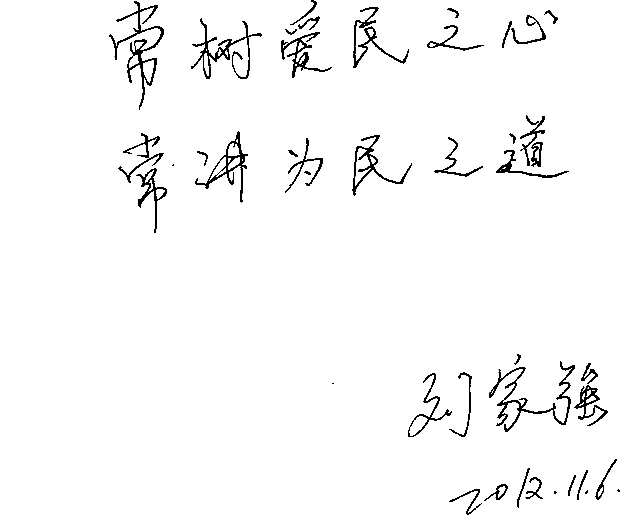 常树爱民之心
常讲为民之道
刘家强
2012.11.6.